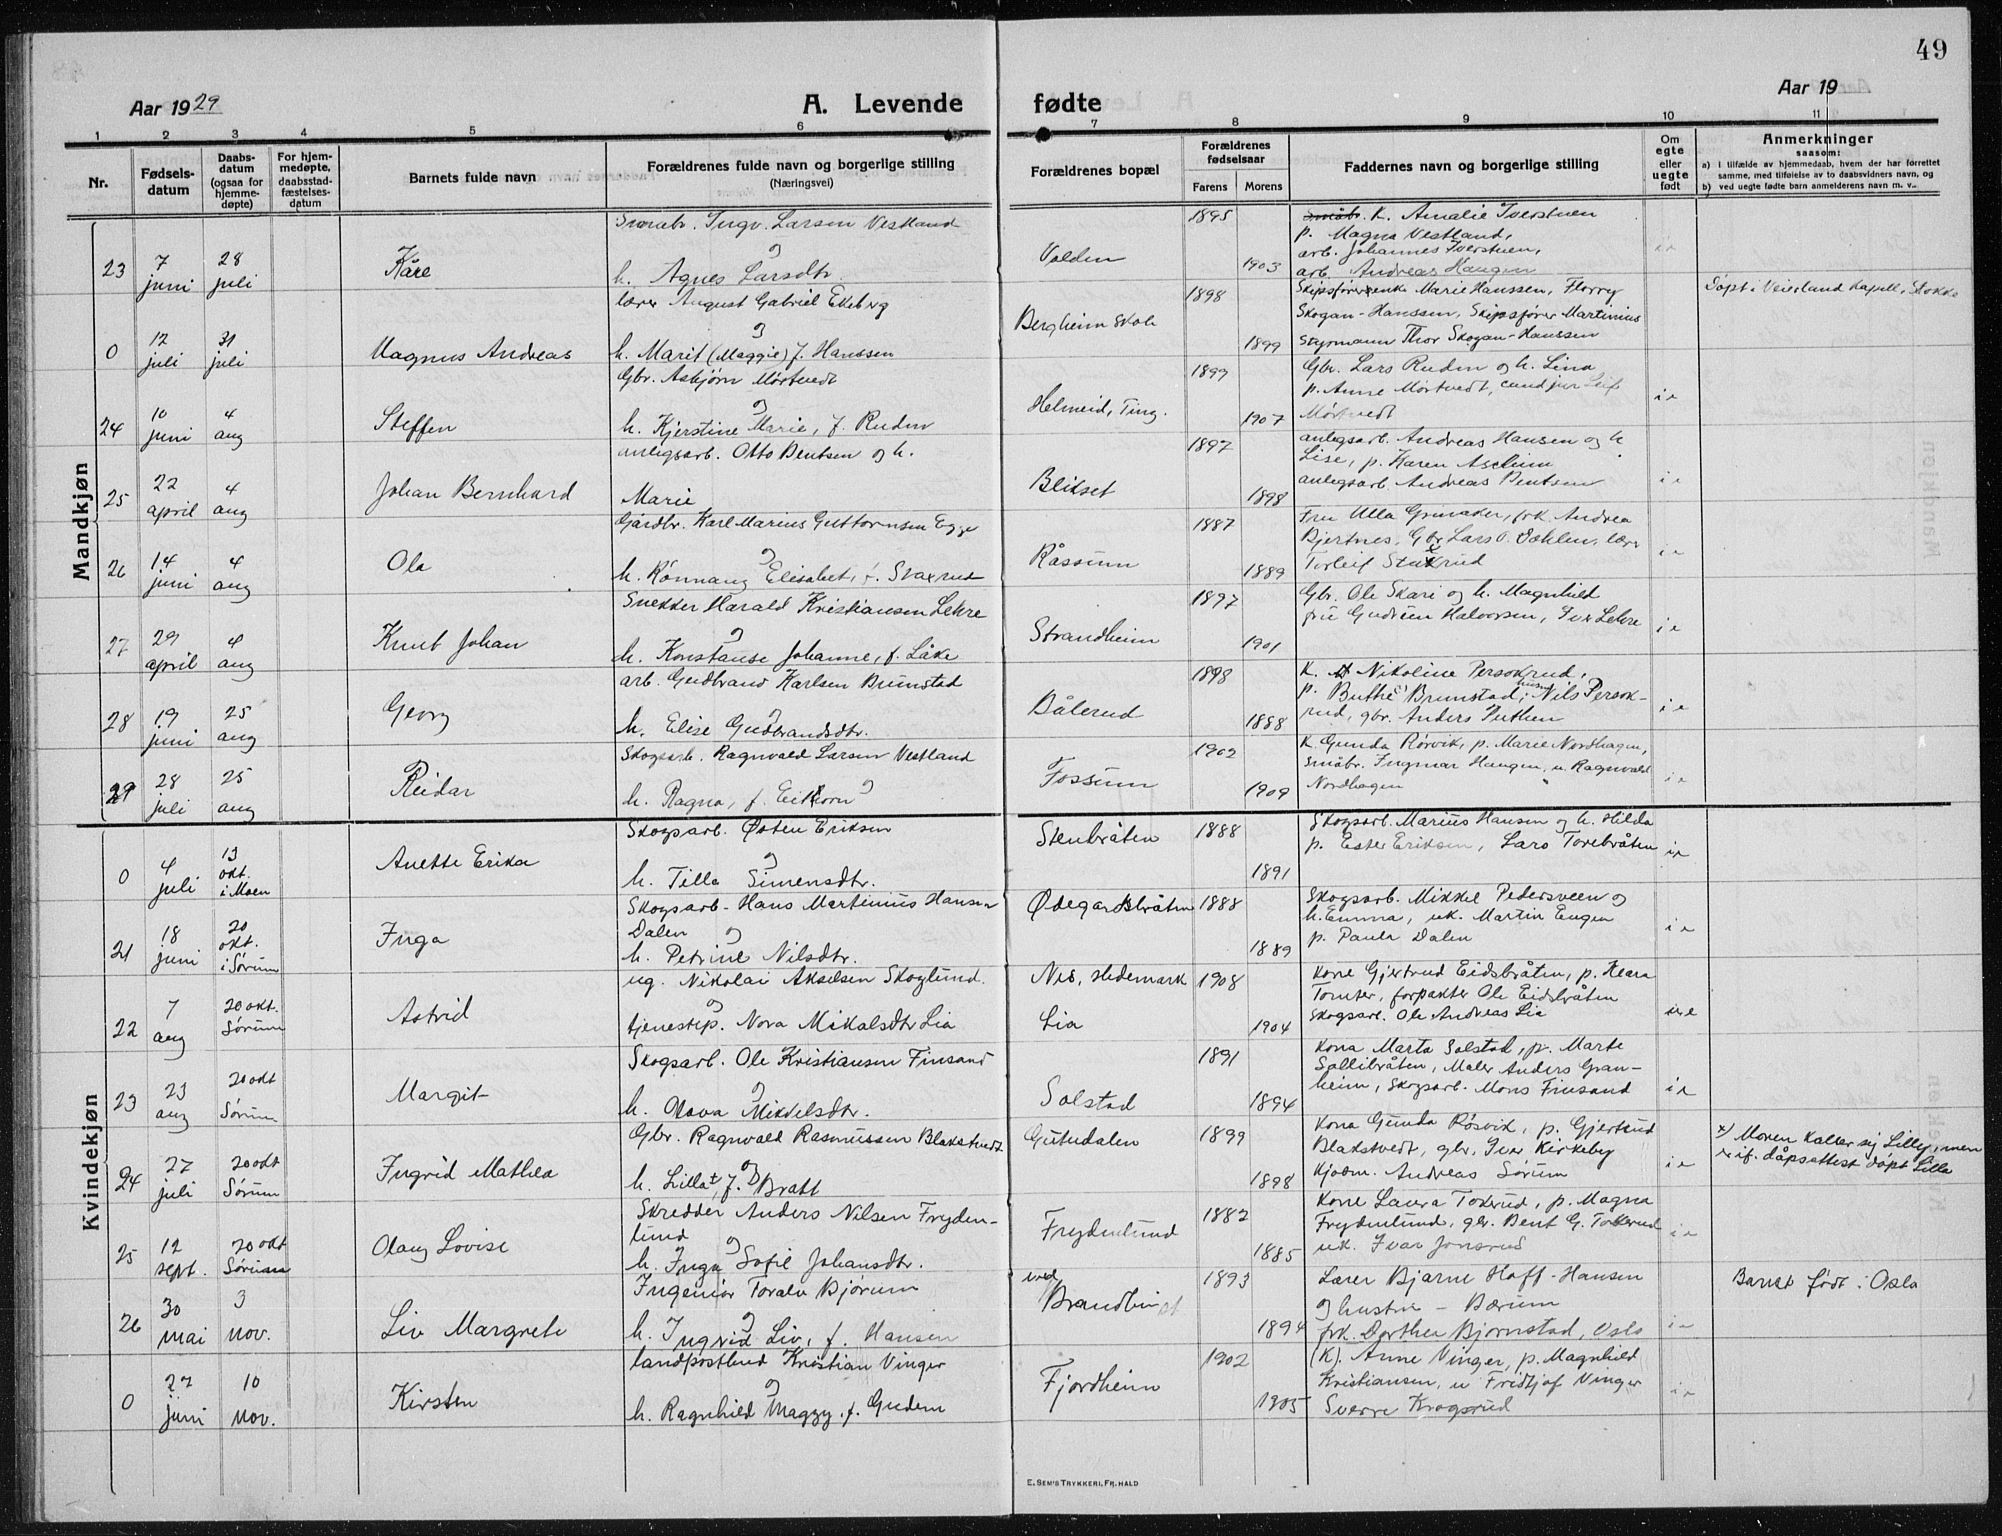 49
Aar 1929
A. Levende fødte
Aar 19
1 2 3 4 5 6 7 8 9 10 11
Nr.
Fødsels-
datum
Daabs-
datum
(ogsaa for
hjemme-
døpte)
For hjem-
medøpte,
daabsstad-
fæstelses-
datum
Barnets fulde navn
Forældrenes fulde navn og borgerlige stilling
(Næringsvei)
Forældrenes bopæl
Forældrenes
fødselsaar
Farens Morens
Faddernes navn og borgerlige stilling
Om
egte
eller
uegte
født
Anmerkninger
saasom:
a) i tilfælde av hjemmedaab, hvem der har forrettet
samme, med tilføielse av to daabsvidners navn, og
b) ved uegte fødte barn anmelderens navn m. v..
Mandkjøn
23 7 juni 28 juli Kåre
Ingv. Larsen Vestland
og
h. Agnes Larsdtr.
Volden 1895 1903
K. Amalie Iverstuen
p. Magna Vestland,
arb. Johannes Iverstuen,
arb. Andreas Haugen
0 12 juli 31 juli Magnus Andreas
lærer August Gabriel Ekeberg
og
h. Marit (Maggie) f. Hanssen
Bergheim skole 1898 1899
Skipsførerenke Marie Hanssen, Florry
Skogan-Hanssen, Skipsfører Martinius
Styrmann Thor Skogan-Hanssen
Døpt i Veierland Kapell, Stokke
24 10 juni 4 aug Steffen
Gbr. Asbjørn Mørtvedt
og
h. Kjerstine Marie, f. Ruden
Helmeid, Ting. 1899 1907
Gbr. Lars Ruden og h. Lina
p. Anne Mørtvedt, cand jur Leif
Mørtvedt
i e
25 22 april 4 aug Johan Bernhard
anlegsarb. Otto Bentsen og h.
Marie
Blikset 1897 1898
anlegsarb. Andreas Hansen og h
Lise, p. Karen Aschim
anlegsarb Andreas Bentsen
i e
26 14 juni 4 aug Ola
Gårdbr. Karl Marius Guttormsen Egge
og
h. Rønnaug Elisabet, f. Staxrud
Råssum 1887 1889
Fru Ulla Grinaker, frk. Andrea
Bjertnes, Gbr Lars O. Dæhlen, lærer
Torleif Staxrud
i e
27 29 april 4 aug Knut Johan
Snekker Harald Kristiansen Lehre
og
h. Konstanse Johanne, f. Låke
Strandheim 1897 1901
Gbr. Ole Skari og h. Magnhild
fru Gudrun Halvorsen, Iver Lehre
i e
28 19 juni 25 aug Georg
arb. Gudbrand Karlsen Brunstad
og
h. Elise Gudbrandsdtr.
Bålerud 1898 1888
K. Nikoline Persokrud,
p. Buthe Brunstad, Nils Persok-
rud, gbr. Anders Puthen
i e
29 28 juli 25 aug Reidar
Skogsarb. Ragnvald Larsen Vestland
og
h. Ragna, f. Eikorn
Fossum 1902 1909
K. Gunda Rørvik, p. Marie Nordhagen,
småbr. Ingmar Haugen, u. Ragnvald
Nordhagen
i e
Kvindekjøn
0 4 juli 13 okt. i Moen Anette Erika
Skogsarb. Østen Eriksen
og
h. Tilla Simensdtr.
Stenbråten 1888 1891
Skogsarb. Marius Hansen og h. Hilda
p. Ester Eriksen, Lars Torebråten
i e
21 18 juni 20 okt. i Sørum Inga
Skogsarb. Hans Martinius Hansen
Dalen og
h. Petrine Nilsdtr.
Ødegardsbråten 1888 1889
Skogsarb. Mikkel Pedersveen og
h. Emma, uk. Martin Engen
p. Paula Dalen
i e
22 7 aug 20 okt. Sørum Astrid
ug. Nikolai Akselsen Skoglund.
og
tjenestep. Nora Mikalsdtr Lia
Nes, Hedemark 1908
Lia 1904
Kone Gjertrud Eidsbråten, p. Klara
Tomter, forpakter Ole Eidsbråten
Skogsarb. Ole Andreas Lia
u e
23 23 aug 20 okt Sørum Margit
Skogsarb. Ole Kristiansen Finsand
og
h. Olava Mikkelsdtr.
Solstad 1891 1894
Kona Marta Solstad, p. Marte
Sollibråten, Maler Anders Gran-
heim, Skogsarb. Mons Finsand
i e
24 27 juli 20 okt Sørum Ingrid Mathea
Gbr. Ragnvald Rasmussen Blakstvedt
og
h. Lilla x, f. Bratt
Gutudalen 1899 1898
Kona Gunda Rørvik, p. Gjertrud
Blakstvedt, gbr. Iver Kirkeby
Kjøbm. Andreas Sørum
i e
x) Moren kaller sig Lilly, men
er if. dåpsattest døpt Lilla
25 12 sept. 20 okt Sørum Olaug Lovise
Skredder Anders Nilsen Fryden-
lund og
h. Inga Sofie Johansdtr.
Frydenlund 1882 1885
Kone Laura Tokerud, p. Magna
Frydenlund, gbr. Bent G. Tokerud
uk. Ivar Jonsrud
i e
26 30 mai 3 nov. Liv Margrete
Ingeniør Toralv Bjørum
og
h. Ingrid Liv, f. Hansen
ved
Brandbu st 1893 1894
Lærer Bjarne Hoff-Hansen
og hustru – Bærum
frk. Dorthea Bjørnstad, Oslo
i e
Barnet født i Oslo
0 27 juni 10 nov. Kirsten
landpostbud Kristian Vinger
og
h. Ragnhild Maggy, f. Gudem
Fjordheim 1902 1905
(K). Anne Vinger, p. Magnhild
Kristiansen, u Fridtjof Vinger
Sverre Krogsrud
i e
E. SEM'S TRYKKERI, FR. HALD